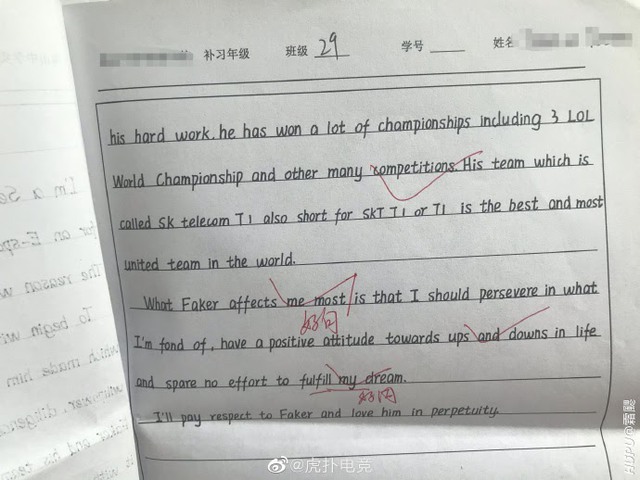 补习年级 班级 29 学号 姓名
his hard work. he has won a lot of championships including 3 LOL
World Championship and other many competitions. His team which is
called SK telecom T1 also short for SKT T1 or T1 is the best and most
united team in the world.
What Faker affects me most is that I should persevere in what
好句
I'm fond of, have a positive attitude towards ups and downs in life
and spare no effort to fulfill my dream.
好词
I'll pay respect to Faker and love him in perpetuity.
I'm a Se
an E-spo
The reason w
To begin wi
which made him
diligenc
and his team
@虎扑电竞
HUPU@霜鳃